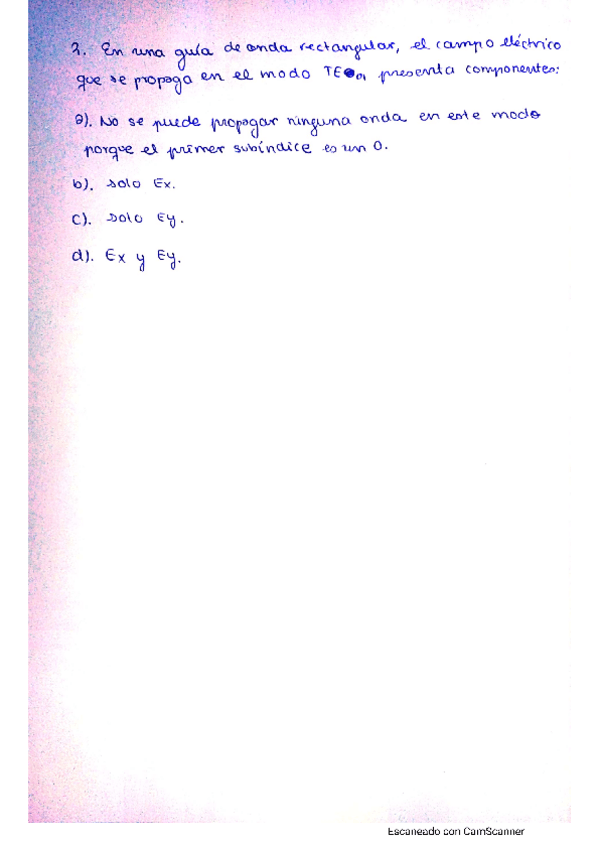 2. En una guía de onda rectangular, el campo eléctrico
que se propaga en el modo TE01 presenta componentes:
a). No se puede propagar ninguna onda en este modo
porque el primer subíndice es un 0.
b). Solo Ex.
c). Solo Ey.
d). Ex y Ey.
Escaneado con CamScanner